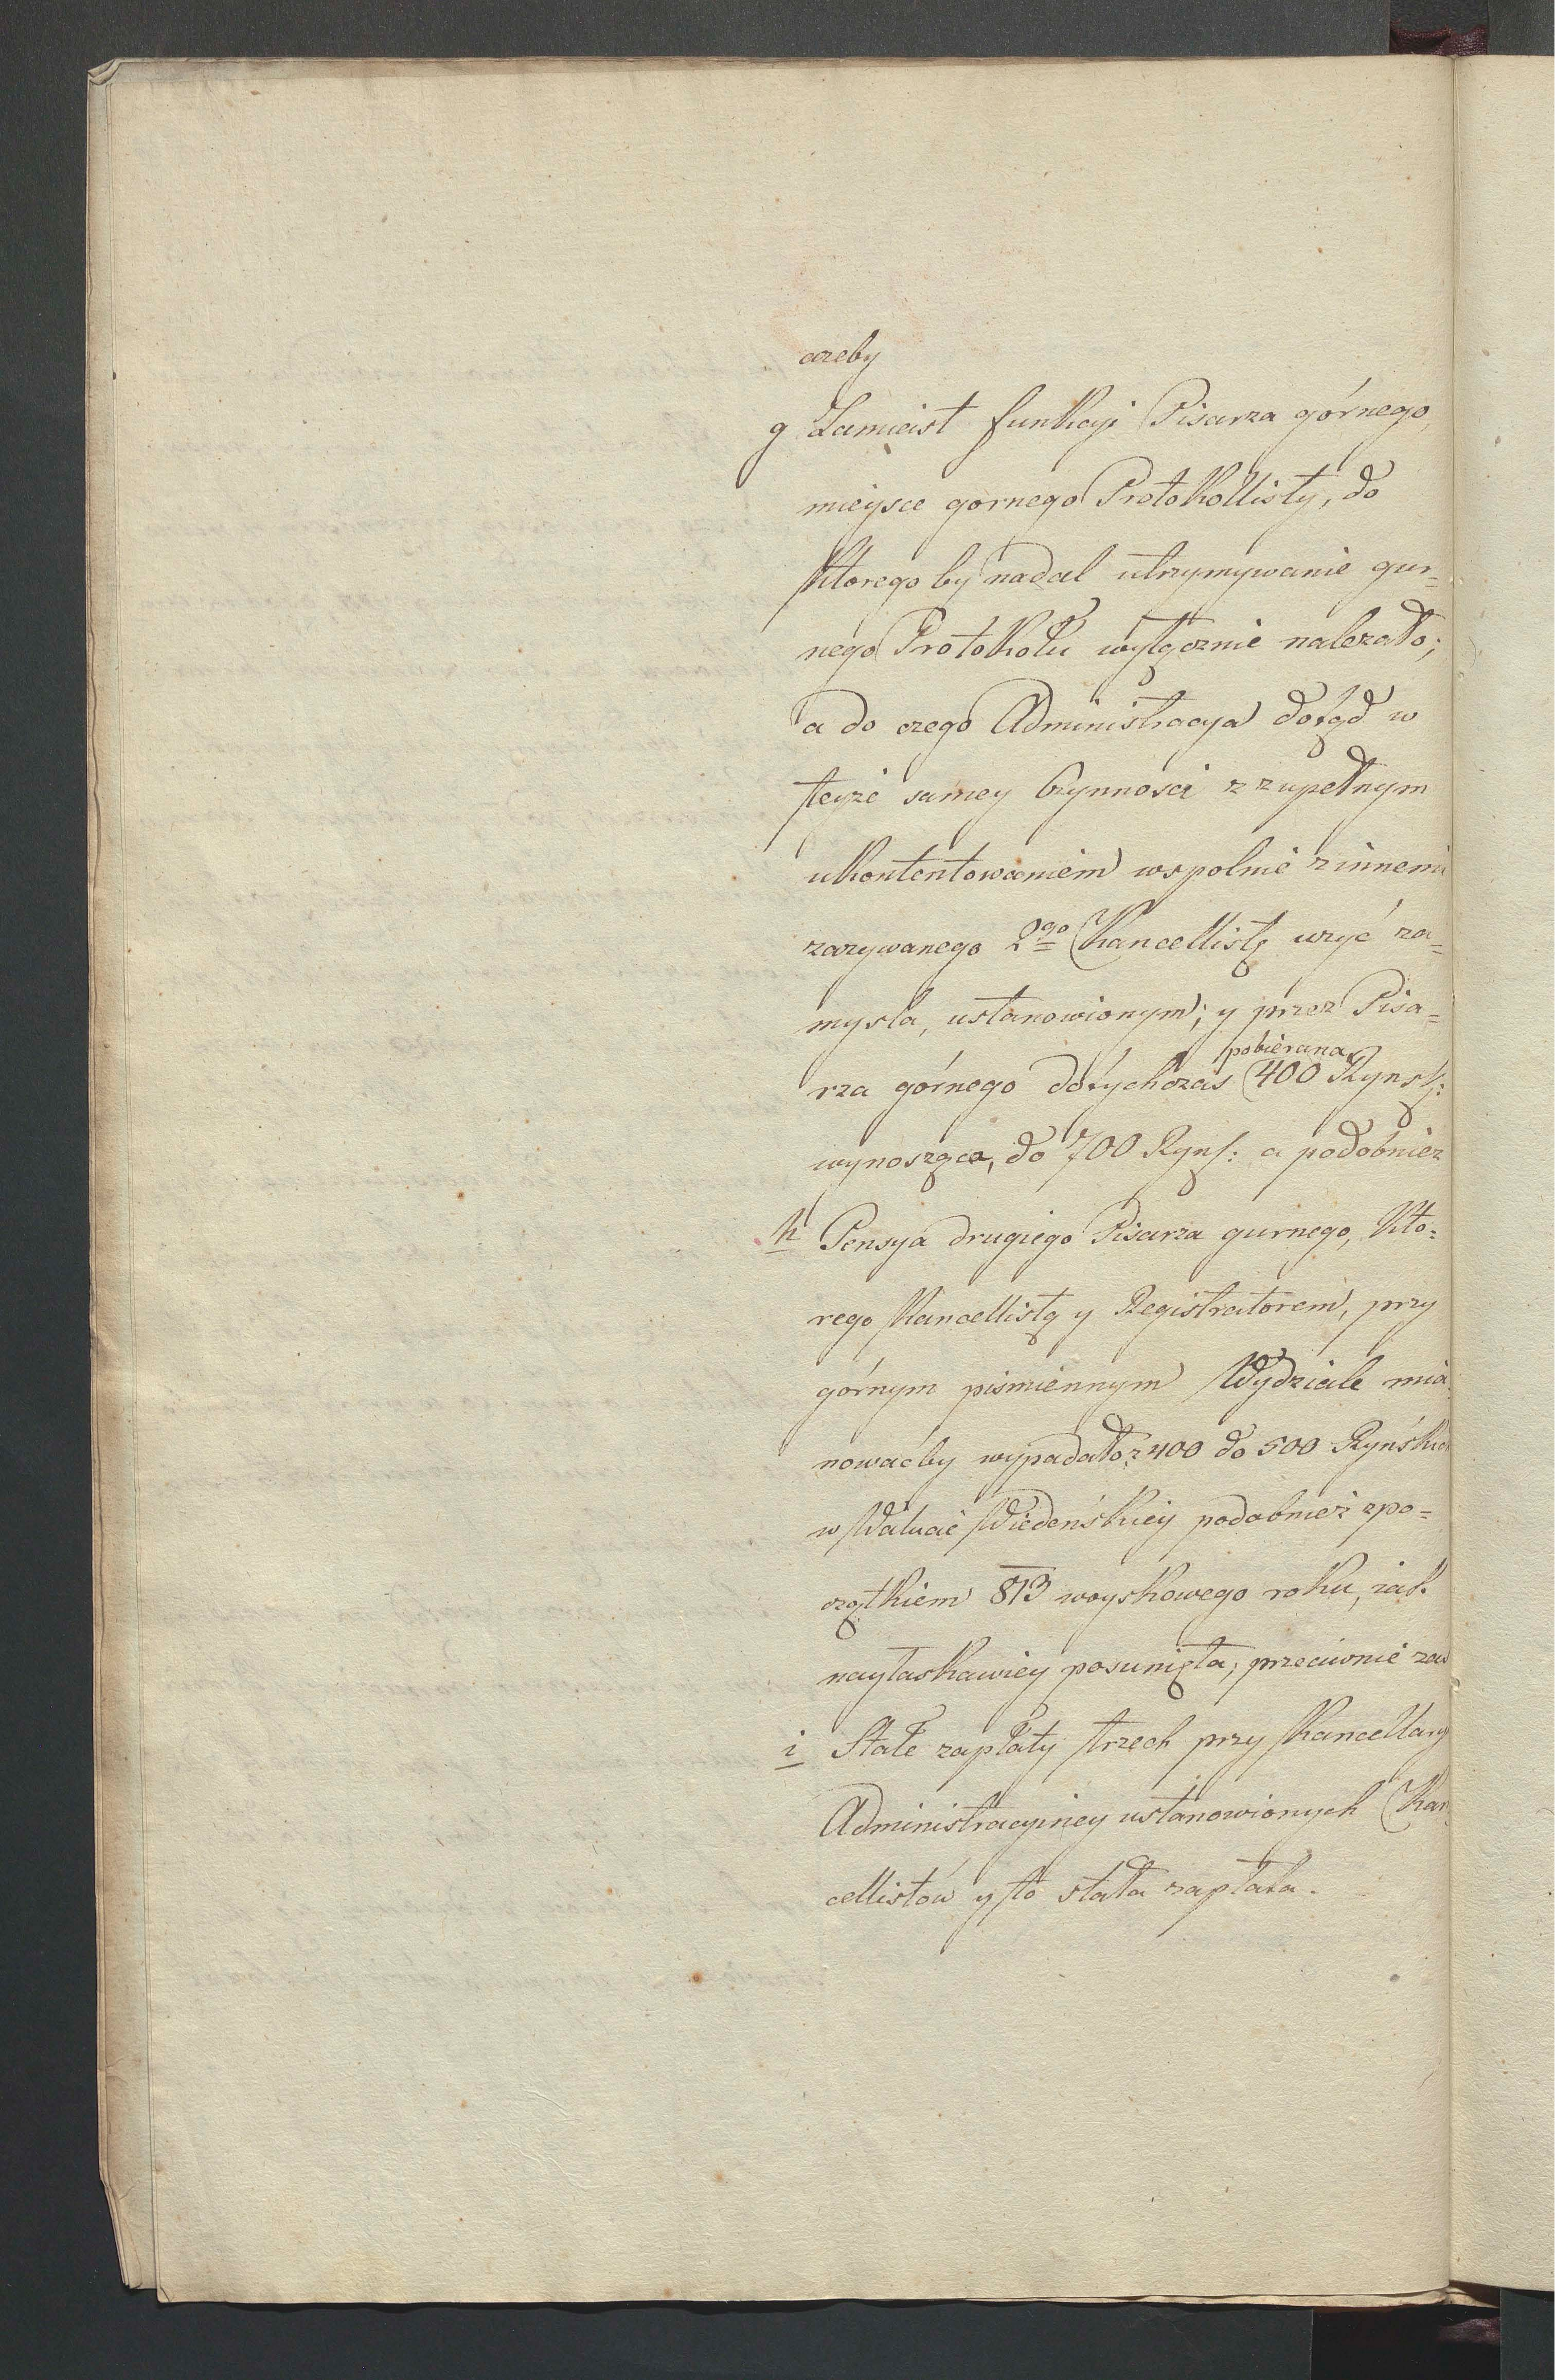 ażeby
g Zamiast funkcyi Pisarza górnego,
mieysce gornego Protokollisty, do
ktorego by nadal utrzymywanie gur=
nego Protokołu wyłącznie nalezało;
a do czego Administracya dotąd w
teyże samey Czynności z zupełnym
ukontentowaniem wspolnie z innemi
zazywanego 2go Kancellistę uzyć za=
mysla, ustanowionym; y przez Pisa=
pobierana
rza górnego dotychczas 400 Rynsk:
wynosząca, do 700 Ryns: a podobnież
h Pensya drugiego Pisarza gurnego, kto=
rego Kancellistą y Registratorem, przy
górnym pismiennym Wydziale mia=
nowaćby wypadało z 400 do 500 Ryńskich
w Walucie Wiedeńskiey podobnież z po=
czątkiem 813 woyskowego roku, iak
nayłaskawiey posunięta, przeciwnie zaś
i Stałe zapłaty trzech przy Kancellaryi
Administracyiney ustanowionych Kan
cellistów y to stała zapłata.